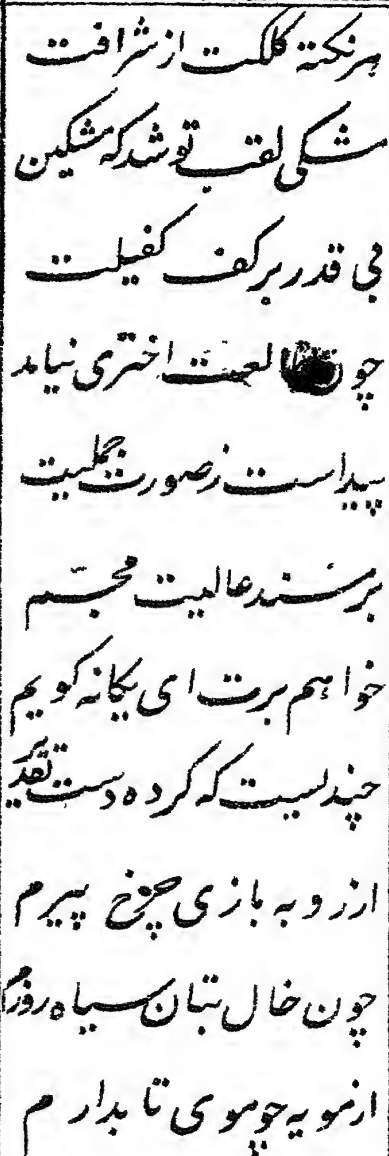 هر نکتهٔ کلکت از شرافت
مشکی لقب تو شد که مشکین
بی قدر بر کف کفیلت
چون لعبت اختری نیاید
پیداست ز صورت جمیلت
بر مسند عالیت مجسم
خواهم برت ای یگانه گویم
چندیست که کرده دست تقدیر
از روبه بازی چرخ پیرم
چون خال بتان سیاه روزم
از مویه چو موی تابدارم